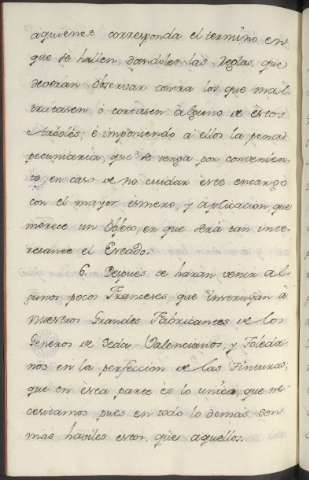 aquienes corresponda el termino en
que se hallen, dandoles las Reglas que
deberan observar contra los que mal
tratasen ó cortasen alguno de estos
Arboles, é imponiendo á ellos la pena
pecuniaria, que se tenga por convenien
te en caso de no cuidar este encargo
con el mayor esmero, y aplicacion que
merece un Objeto, en que será tan inte
resante el Estado.
6. Despues se haran venir al
gunos pocos Franceses que instruyan á
nuestros Grandes Fabricantes de los
Generos de Seda Valencianos, y Toleda
nos en la perfeccion de las Tinturas,
que en esta parte es lo unico, que ne
cesitamos pues en todo lo demas son
mas habiles estos, que aquellos.